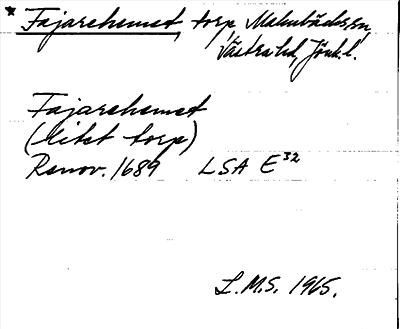 * Fajarehemet, torp, Malmbäck sn,
Västra hd, Jönk. l.
Fajarehemet
(litet torp)
Renov. 1689 LSA E 32
L.M.S. 1965.